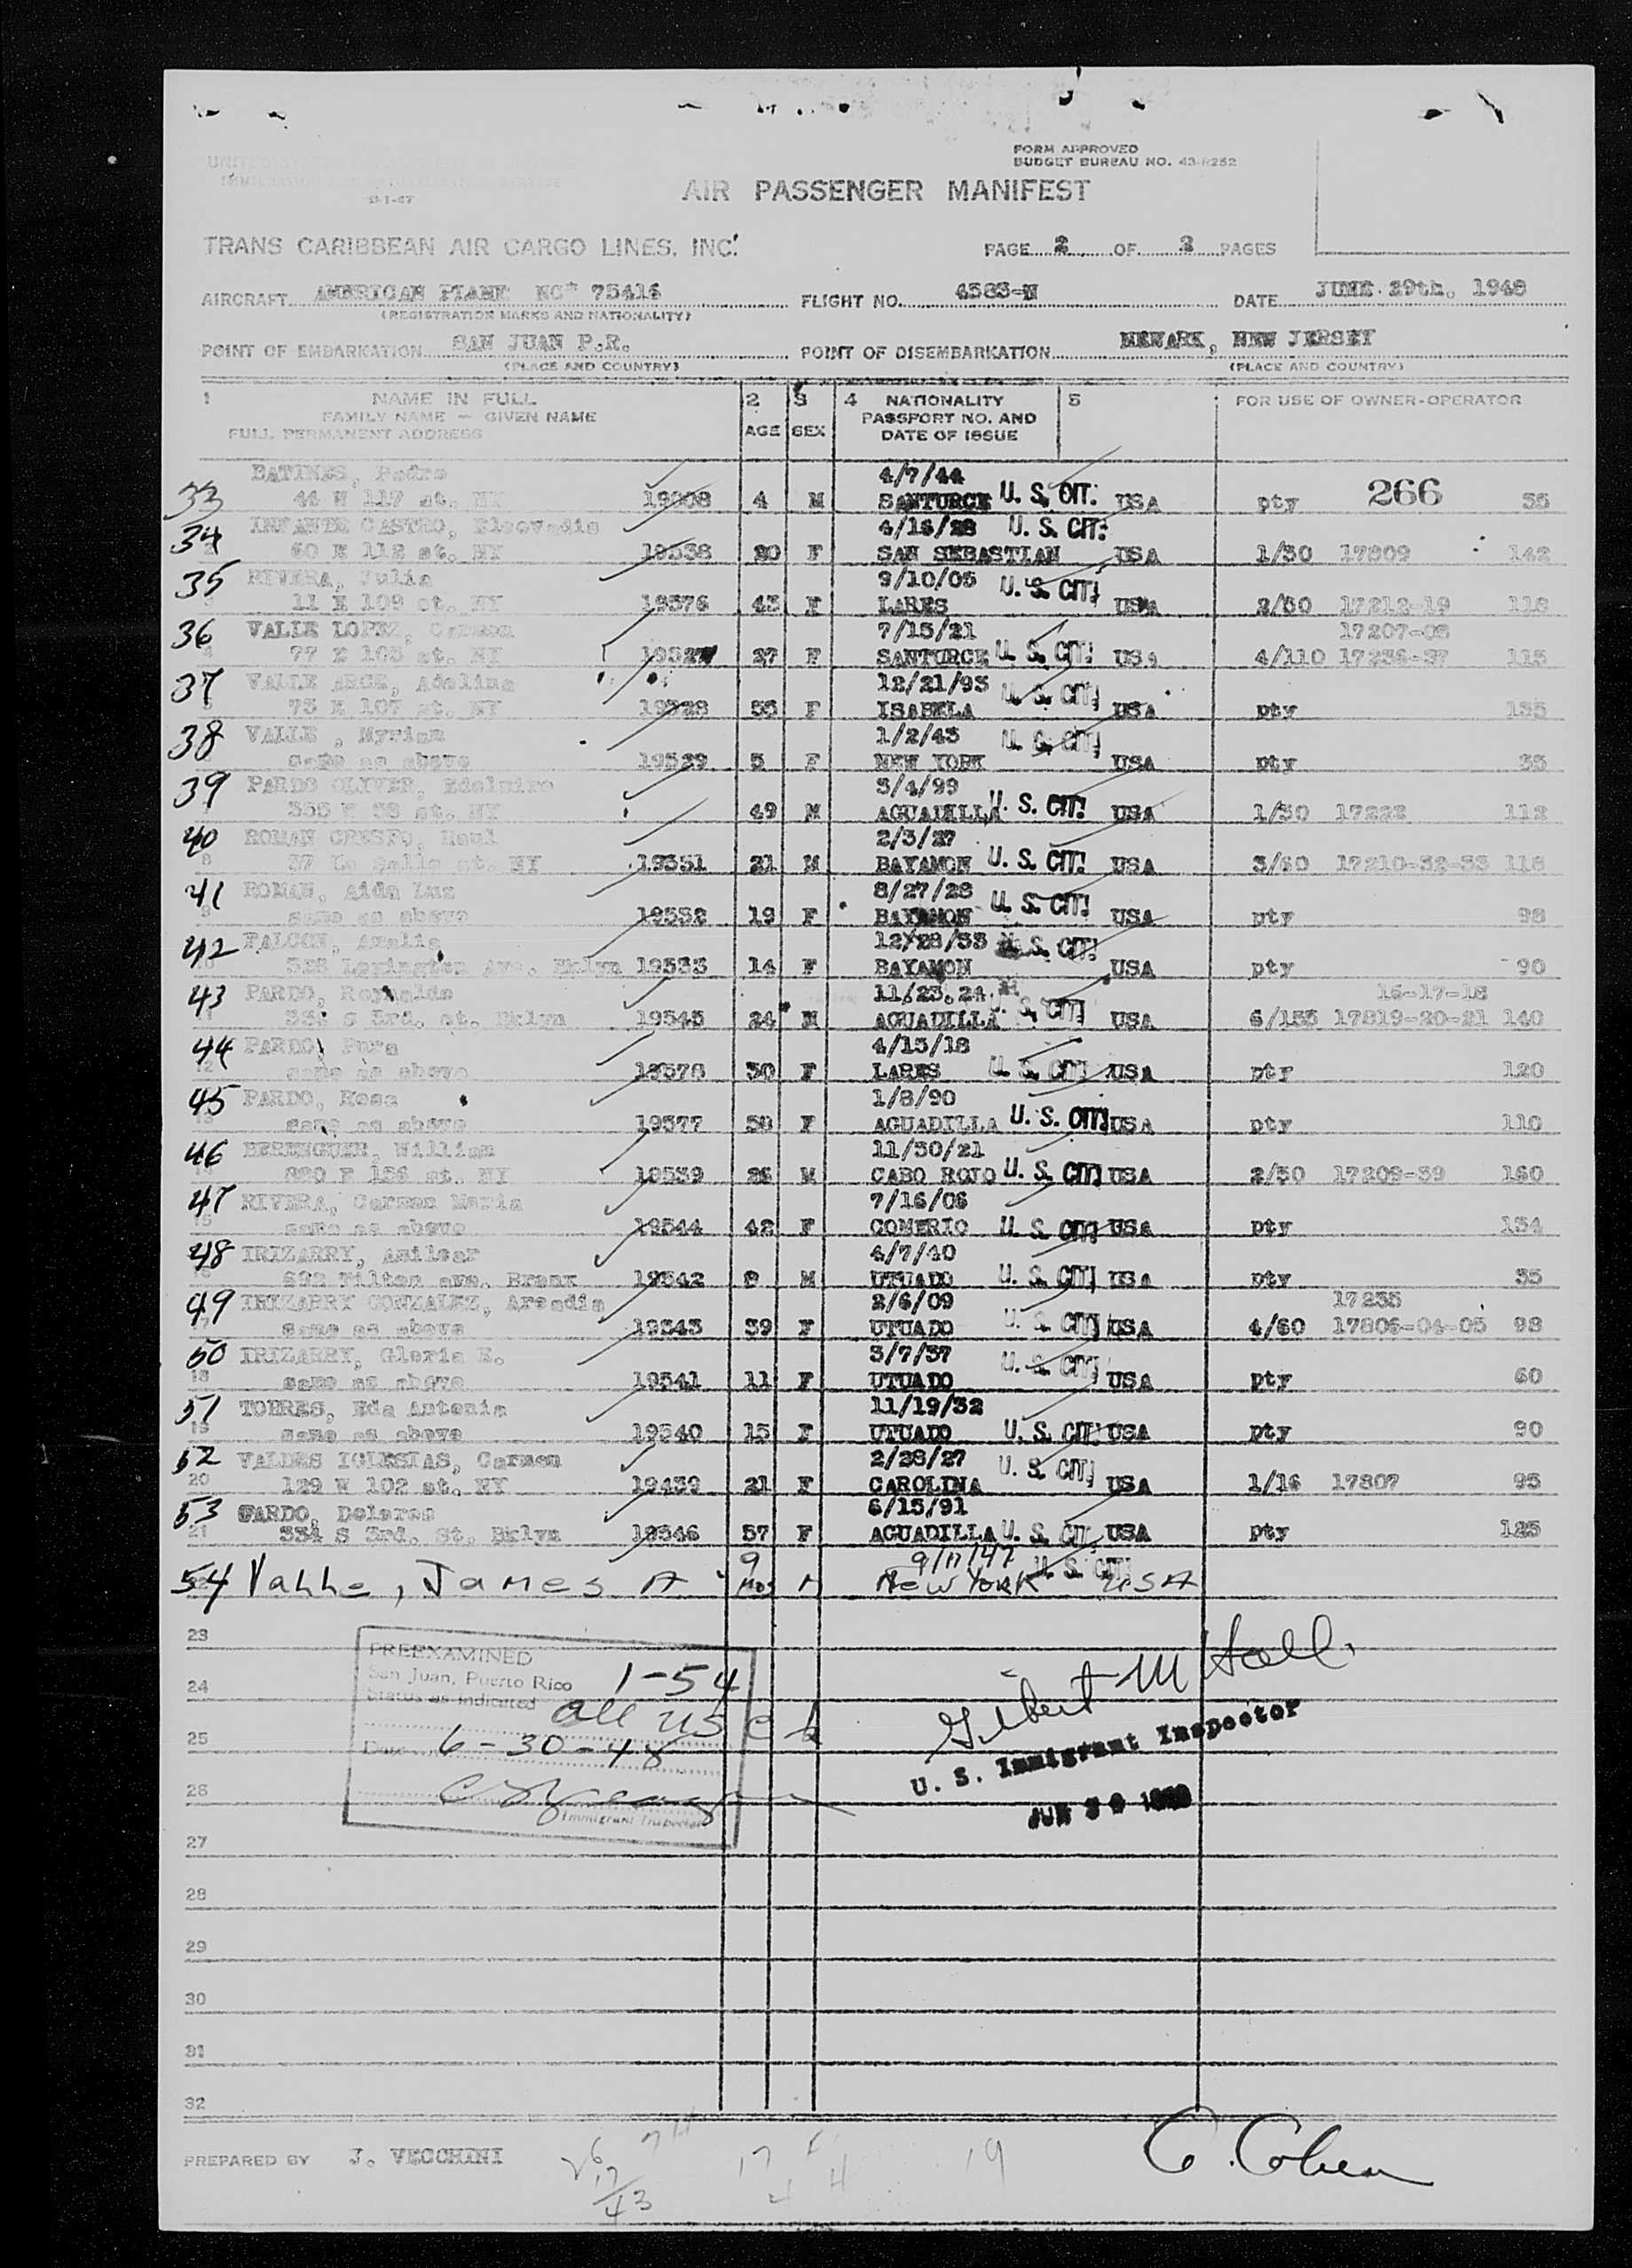 FORM APPROVED
BUDGET BUREAU NO. 43-R252
9-1-47
AIR PASSENGER MANIFEST
TRANS CARIBBEAN AIR CARGO LINES, INC.
PAGE 2 OF 2 PAGES
AIRCRAFT AMERICAN PLANE NC* 75416 FLIGHT NO. 4583-N DATE JUNE 29th, 1948
(REGISTRATION MARKS AND NATIONALITY)
POINT OF EMBARKATION SAN JUAN P.R. POINT OF DISEMBARKATION NEWARK, NEW JERSEY
(PLACE AND COUNTRY) (PLACE AND COUNTRY)
1 NAME IN FULL 2 3 4 NATIONALITY 5 FOR USE OF OWNER-OPERATOR
FAMILY NAME — GIVEN NAME PASSPORT NO. AND
FULL PERMANENT ADDRESS AGE SEX DATE OF ISSUE
BATINES, Pedro 4/7/44
33 44 W 117 st. NY 4 M SANTURCE U. S. CIT. USA pty 266 35
34 INFANTE CASTRO, 4/16/28 U. S. CIT.
60 E 112 st. NY 19538 20 F SAN SEBASTIAN USA 1/30 17809 142
35 RIVERA, Julia 9/10/05 U. S. CIT.
11 E 109 st. NY 19576 43 F LARES USA 2/50 17212-19 118
36 VALLE LOPEZ, Carmen 7/15/21 17207-08
77 E 103 st. NY 19527 27 F SANTURCE U. S. CIT. USA 4/110 17236-37 115
37 VALLE ARCE, Adelina 12/21/93 U. S. CIT.
75 E 107 st. NY 19528 55 F ISABELA USA pty 135
38 VALLE , Myriam 1/2/43 U. S. CIT.
same as above 19529 5 F NEW YORK USA pty 35
39 PARDO OLIVER, Edelmiro 3/4/99
355 W 38 st. NY 49 M AGUADILLA U. S. CIT. USA 1/30 17222 112
40 ROMAN CRESPO, Raul 2/3/27
37 La Salle st. NY 19531 21 M BAYAMON U. S. CIT. USA 3/60 17210-32-33 118
41 ROMAN, Aida Luz 8/27/28 U. S. CIT.
same as above 19532 19 F BAYAMON USA pty 98
42 FALCON, Amalia 12/28/33 U. S. CIT.
Lexington Ave. Bklyn 19533 14 F BAYAMON USA pty 90
43 PARDO, Reynaldo 11/23.24 16-17-18
334 S 3rd. st. Bklyn 19545 24 M AGUADILLA U. S. CIT. USA 6/155 17819-20-21 140
44 PARDO, Pura 4/15/18
same as above 19578 30 F LARES U. S. CIT. USA pty 120
45 PARDO, Rosa 1/8/90
same as above 19577 58 F AGUADILLA U. S. CIT. USA pty 110
46 BERENGUER, William 11/30/21
E 156 st. NY 19539 26 M CABO ROJO U. S. CIT. USA 2/50 17209-39 160
47 RIVERA, Carmen Maria 7/16/06
same as above 19544 42 F COMERIO U. S. CIT. USA pty 134
48 IRIZARRY, Amilcar 4/7/40
692 Tilton ave. Bronx 19542 8 M UTUADO U. S. CIT. USA pty 35
49 IRIZARRY GONZALEZ, Arcadia 2/6/09 17235
same as above 19543 39 F UTUADO U. S. CIT. USA 4/60 17806-04-05 98
50 IRIZARRY, Gloria E. 3/7/37 U. S. CIT.
same as above 19541 11 F UTUADO USA pty 60
51 TORRES, Eda Antonia 11/19/32
same as above 19540 15 F UTUADO U. S. CIT. USA pty 90
52 VALDES IGLESIAS, Carmen 2/28/27 U. S. CIT.
129 W 102 st. NY 19439 21 F CAROLINA USA 1/16 17807 95
53 PARDO, Dolores 6/15/91
334 S 3rd. St. Bklyn 19546 57 F AGUADILLA U. S. CIT. USA pty 125
54 James A 9 mos M 9/11/47 New York U. S. CIT. USA
23
PREEXAMINED
San Juan, Puerto Rico 1-54
24 Status as indicated all US
25 Date 6-30-48
26
Immigrant Inspector
Gilbert M Hall
U. S. Immigrant Inspector
JUN 30 1948
27
28
29
30
31
32
PREPARED BY J. VECCHINI
26 17 43
17 4 19
C. Cohen